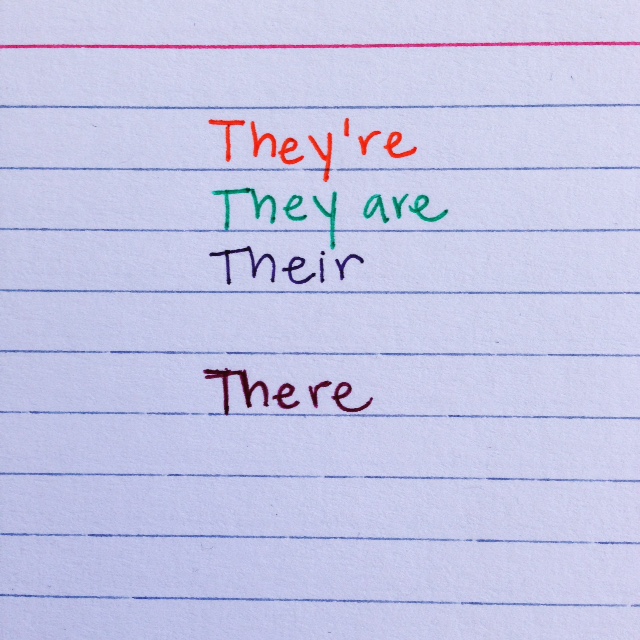 They're
They are
Their
There